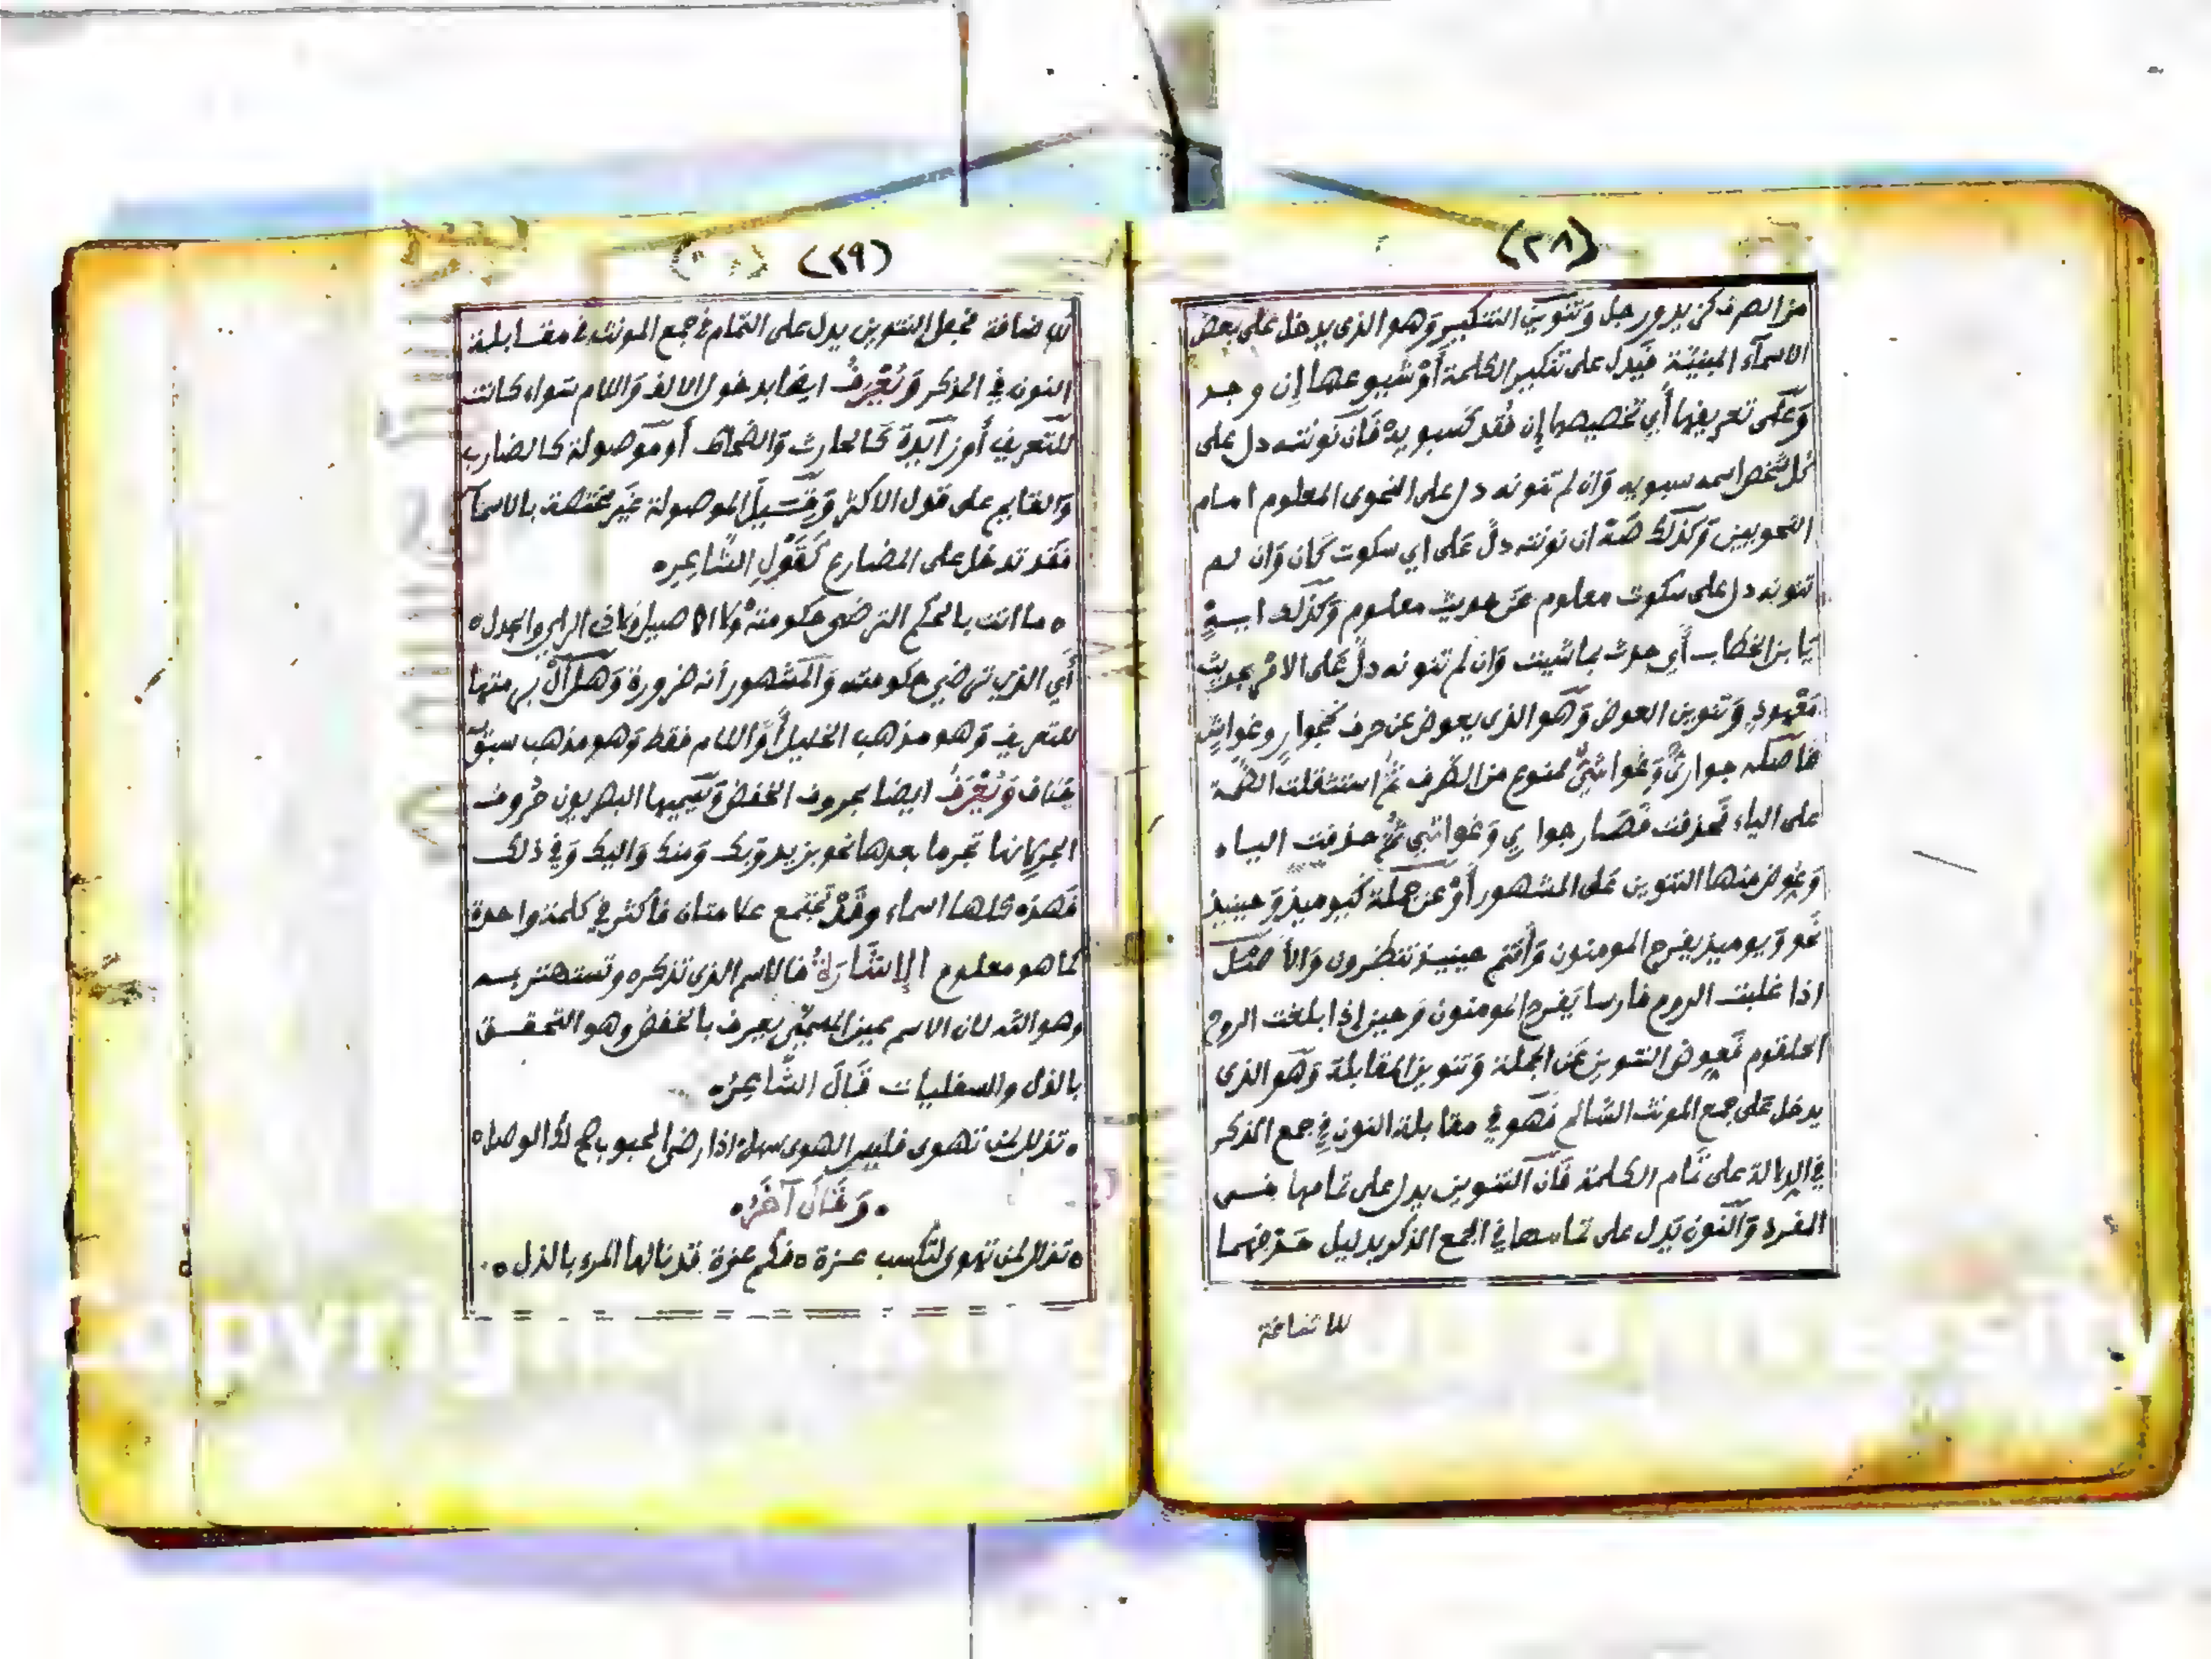 (٢٨)
من الصرف كزيد ورجل وَتنوين التنكير وَهو الذى يدخل على بعض
الاسمآء المبنيّة فيَدل على تنكير الكلمة أوْ شيوعها إن وجد
وَعلى تعريفها أي تخصيصها إن فُقد كسيبويه فَان نونته دل على
كل شخص اسمه سيبويه وَان لم تنونه دل على النحوى المعلوم امام
النحويين وَكذلك صَه ان نونته دلّ عَلى اي سكوت كَان وَان لم
تنونه دل على سكوت معلوم عَن حديث معلوم وَكذلك ايــهٍ
يَا بن الخطاب أي حدث بما شيت وَان لم تنونه دلّ عَلى الامْر بحديث
مَعْهودٍ وَتنوين العوض وَهو الذى يعوض عن حرف كجوارٍ وغواشٍ
فاصله جواريٌ وَغواشيٌ ممنوع من الصّرف ثمّ استثقلت الضّمة
على الياء فحذفت فَصَار جواري وَغواشي ثمّ حذفت الياء
وَعُوض منها التنوين عَلى المشهور أوْ عَن جملة كيوميذ وَحينيذ
نَحو وَيوميذ يفرح المومنون وَأنتم حينيذ تنظرون وَالأصْل
اذا غلبت الروم فارسا يَفرح المومنون وَحين إذا بلغت الروح
الحلقوم فَعوض التنوين عَن الجملة وَتنوين المقابلة وَهو الذى
يدخل عَلى جمع المونث السّالم فَهو في مقابلة النون في جمع المذكر
في الدلالة على تمام الكلمة فَان التنوين يدل على تمامها في
المفرد وَالنون تَدل على تمامها في الجمع المذكر بدليل حَذفهما
للاضافة
(٢٩)
للاضافة فجعل التنوين يدل على التمام في جمع المونث في مقابلة
النون في المذكر وَيُعْرفُ ايضا بدخول الالف وَاللام سَواء كانت
للتعريف أو زَآيدة كَالحارث وَالضحاك أو مَوْصولة كالضارب
وَالقايم على قول الاكثر وَقيل الموصولة غيَر مختصة بالاسمآ
فقد تدخل على المضارع كَقَوْلِ الشَّاعِرِه
ه ما انت بالحكم الترضى حكومته وَلا الاصيل ولا ذى الراي والجدل ه
أي الذي ترضي حكومته وَالمشهور أنه ضرورة وَهل ألْ برمتها
للتعريف وَهو مذهب الخليل أو اللام فقط وَهو مذهب سيبويه
وَيُعْرَفُ ايضا بحروف الخفض وَيسميها البصريون حروف
الجر لانها تجر ما بعدها نحو بزيد وَبك وَمنك وَاليك وَفي ذلك
فَهذه كلها اسماء وقَدْ تجتمع علامتان فأكثر في كلمة واحدة
كما هو معلوم الإِشَارَةُ فالاسم الذى تذكره وتستهتر بــه
وهو الله لان الاسم عين المسمّى يعرف بالخفض وهو التحقــق
بالذل والسفليات قَالَ الشَّاعِرُه
ه تذلل لمن تهوى فليس الهوى سهل ه اذا رضى المحبوب صح لك الوصل ه
ه وَقَالَ آخَرُه
ه تذلل لمن تهوى لتكسب عــزة ه فكم عزة قد نالها المرء بالذل ه
Copyright © King Saud University